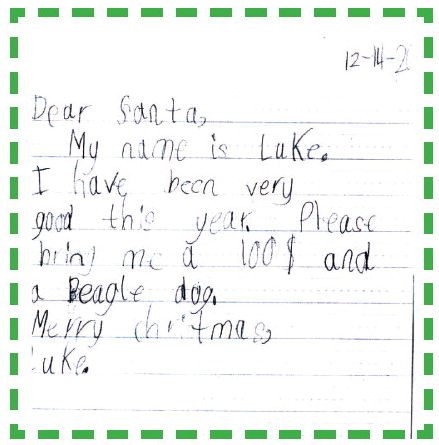 12-14-2
Dear Santa,
My name is Luke.
I have been very
good this year. Please
bring me a 100$ and
a Beagle dog.
Merry christmas,
Luke.